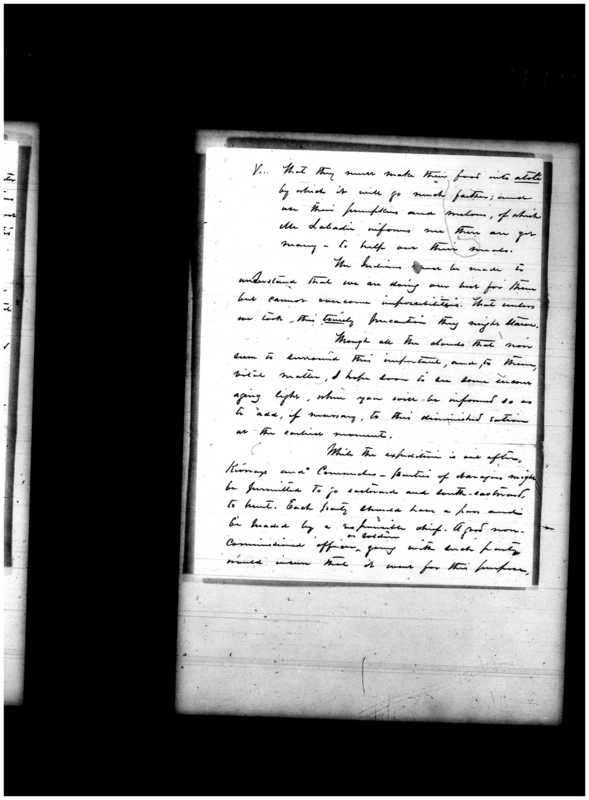 V... That they must make their food into atole
by which it will go much farther; and
use their pumpkins and melons, of which
Mr Labadie informs me there are yet
many – to help out their meals.
The Indians must be made to
understand that we are doing our best for them
but cannot overcome impossibilities. That unless
we took this timely precaution they might starve.
Through all the clouds that now
seem to surround this important, and, to them,
vital matter, I hope soon to see some encour
aging light, when you will be informed so as
to add, if necessary, to this diminished ration
at the earliest moment.
While the expedition is out after
Kiowas and Comanches – parties of Navajoes might
be permitted to go eastward and south-eastward
to hunt. Each party should have a pass and
be headed by a responsible chief. A good non-
commissioned officer, or soldier going with each party
would insure that it went for this purpose,